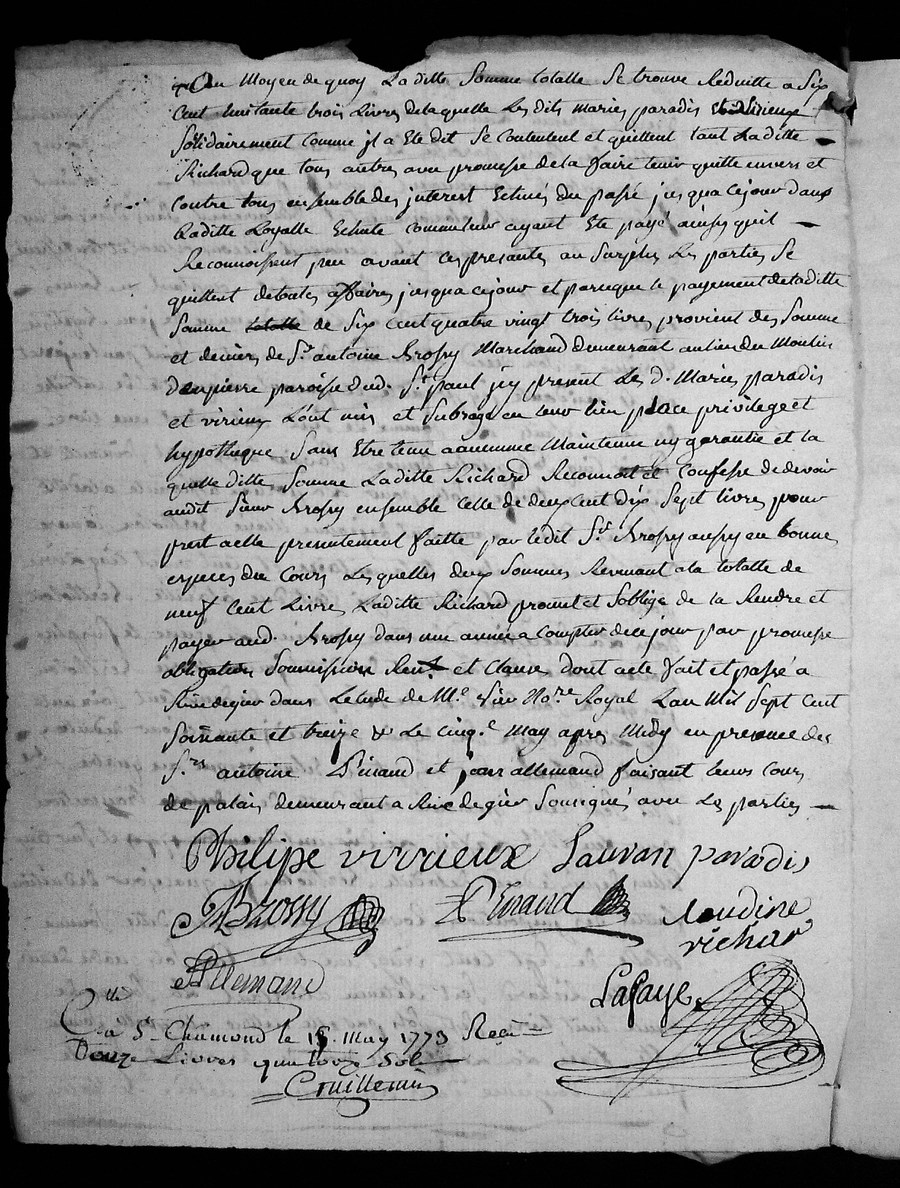 Au Moyen de quoy Laditte Somme totalle Se trouve Reduitte a Six
Cent huitante trois Livres de laquelle Les dits maries paradis et virieux
Solidairement comme jl a Eté dit Se Contentent et quittent tant Laditte
Richard que tous autres avec promesse de la faire tenir quitte envers et
Contre tous ensemble des jnterest Echus du passé jusqua Cejour dans
Laditte Loyalle Echute commeteur ayant Eté payé ainsy quil
Reconnoissent peu avant ces presantes au Surplus Les parties Se
quittent de toutes affaires jusqua cejour et parceque le payement de laditte
Somme totalle de Six Cent quatre vingt trois livres provient des Somme
et deniers de Sr antoine Brossy Marchand demeurant au lieu du Moulin
paroisse dud. St paul jcy present Les d. Maries paradis
et virieux L'ont mis et Subrogé en leur lieu place privilege et
hypotheque Sans Etre tenu a aucunne Maintenue ny garantie et la
quelle ditte Somme Laditte Richard Reconnoit et Confesse de devoir
audit Sieur Brossy ensemble Celle de deux Cent dix Sept livres pour
prest a elle presentement faitte par ledit Sr Brossy aussy en bonne
especes du Cours Les quelles deux Sommes Revenant a la totalle de
neuf Cent Livres Laditte Richard promet et Soblige de la Rendre et
payer aud. Brossy dans une année a Compter de ce jour par promesse
obligation Soumission Ren. et Clause, dont acte fait et passé a
Rivedegier dans Letude de Me Nore Royal Lan Mil Sept Cent
Soixante et treize & Le Cinq.e May apres Midy en presence des
Srs antoine Pinand et jean allemand faisant leurs Cours
de palais demeurant a Rive de gier Sousignés avec Les parties
Philipe virrieux Lauran paradis
ABrossy APinand Claudine
richar
Allemand
Lafaye
Clle
a St Chamond le 15 May 1773 Reçu
Douze Livres quatorze Sols
Cruillemin